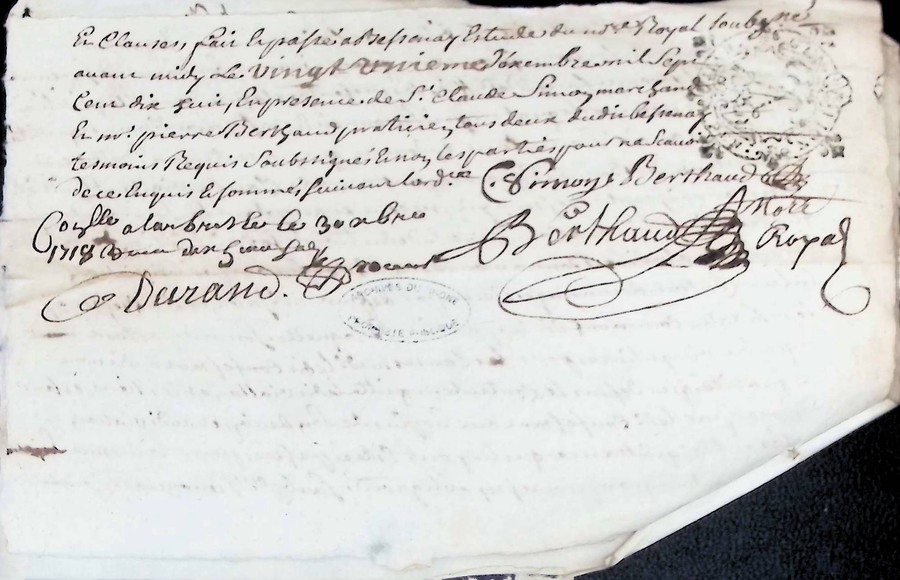 Et Clauses fait et passé a Bessenay Estude du no.re Royal soubsig.né
avant midy Le vingt unieme decembre mil sept
Cent dix huit, En presence de S.r Claude Simon marchand
Et m.r pierre Berthaud praticien tous deux dudit bessenay
tesmoins Requis Soubsignés Et non les parties pour ne scavoir
de ce Enquis Et sommés suivant lord.ce C. Simon Berthaud
Con.lle a larbresle le 30 xbre
1718 Durand
Berthaud
Note Royal
ARCHIVES DU RHONE